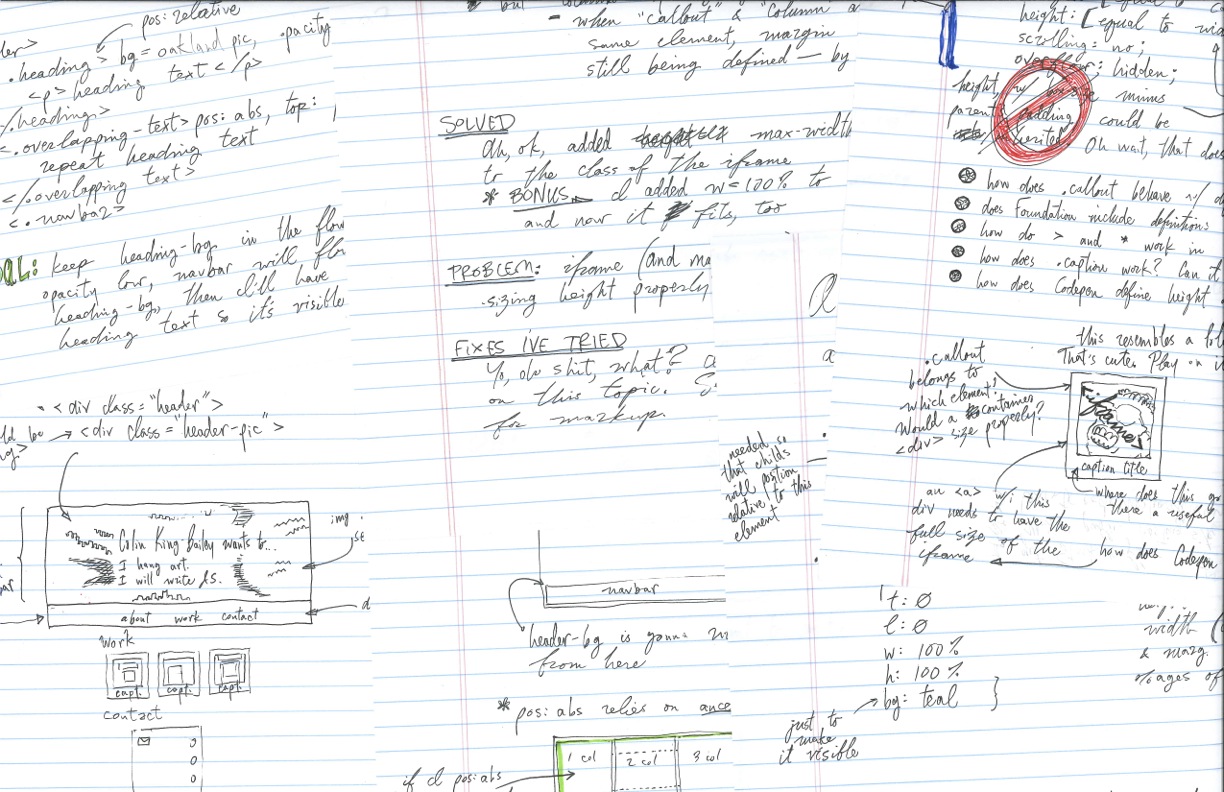 pos: relative
.heading> bg = oakland pic, opacity
<p> heading text </p>
/.heading>
<.overlapping-text> pos: abs, top:
repeat heading text
</.overlapping text>
<.navbar>
keep heading-bg in the flow
opacity low, navbar will
heading-bg, then I'll have
heading text so it's visible
<div class="header">
<div class="header-pic">
Colin King-Bailey wants to...
I hang art.
I will write JS.
img.
about work contact
work
capt. capt. capt.
contact
but
- when "callout" & "column
same element, margin
still being defined — by
SOLVED
Ah, ok, added max-width
to the class of the iframe
* BONUS I added w=100% to
and now it fits, too
PROBLEM: iframe (and
sizing height properly
FIXES I'VE TRIED
Yo, do shit, what?
on this topic.
for markup.
needed so
that childs
will position
relative to this
element
navbar
header-bg is gonna
from here
* pos: abs relies on
1 col 2 col 3 col
if I pos: abs
height: [equal to
scrolling: no;
overflow: hidden;
height, w/ minus
parent padding could be
Oh wait, that does
how does .callout behave w/
does Foundation include definitions
how do > and * work in
how does .caption work? Can it
how does Codepen define height
this resembles a
That's cute. Play on
.callout
belongs to
which element?
Would a container
<div> size properly?
iframe
caption title
an <a> w/i this
div needs to have the
full size of the
iframe
where does this
there a useful
how does Codepen
t: 0
l: 0
w: 100%
h: 100%
bg: teal }
just to
make
it visible
width
& marg.
%ages of